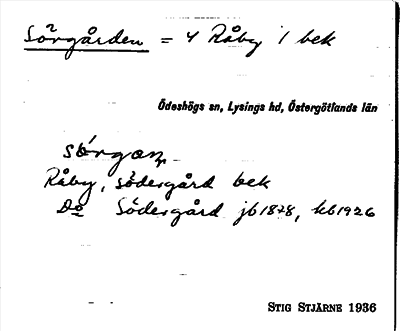 Sörgården = 4 Råby 1 bek
Ödeshögs sn, Lysings hd, Östergötlands län
Råby, Södergård bek
Do Södergård jb1878, kb1926
STIG STJÄRNE 1936